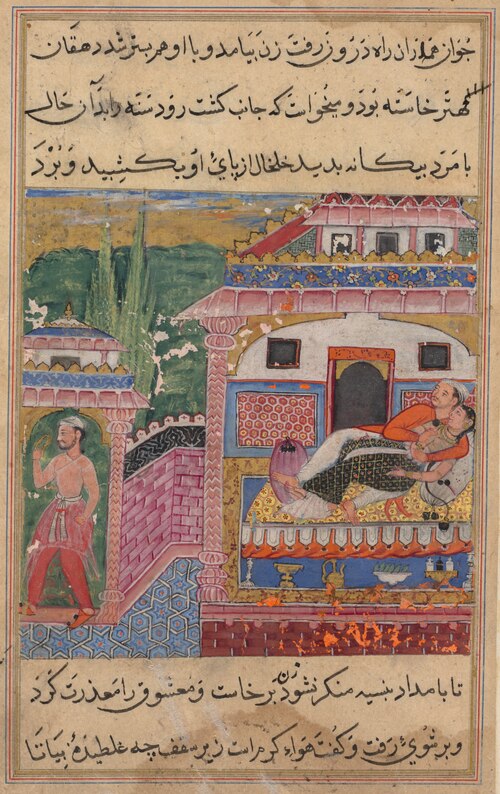 جوان عمله زان راه درون رفت زن بیامد و با او هم بستر شد دهقان
مهتر خاسته بود و میخواست که جانب کشت رود دسته را بدان حال
با مرد بیکانه بدید خلخال از پای او بکشید و ببرد
تا بامداد بنسیه منکر نشود زن برخاست و معشوق را معذرت کرد
و بر شوی رفت و کفت هواء کرم است زیر سقف چه غلطیدهٔ بیا تا